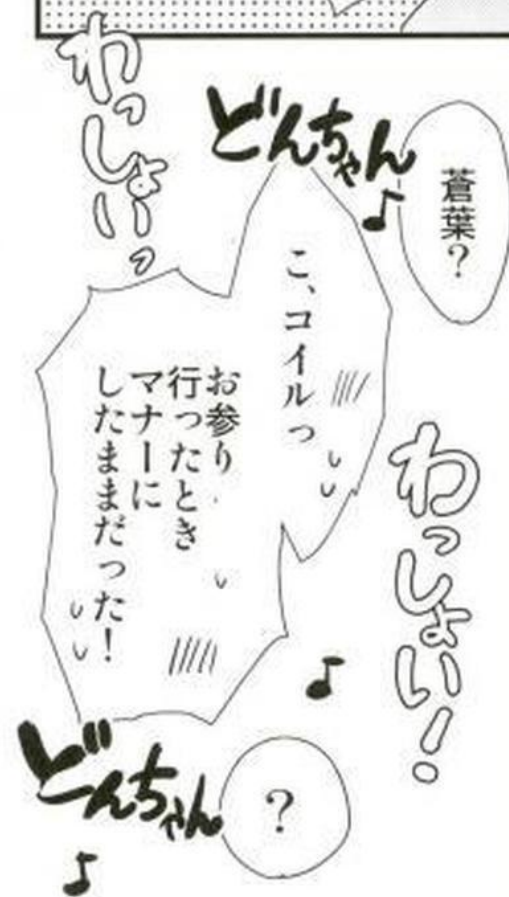 蒼葉?
どんちゃん♪
わっしょいっ
こ、コイルっ
お参り
行ったとき
マナーに
したままだった!
わっしょい!
♪
?
どんちゃん
♪